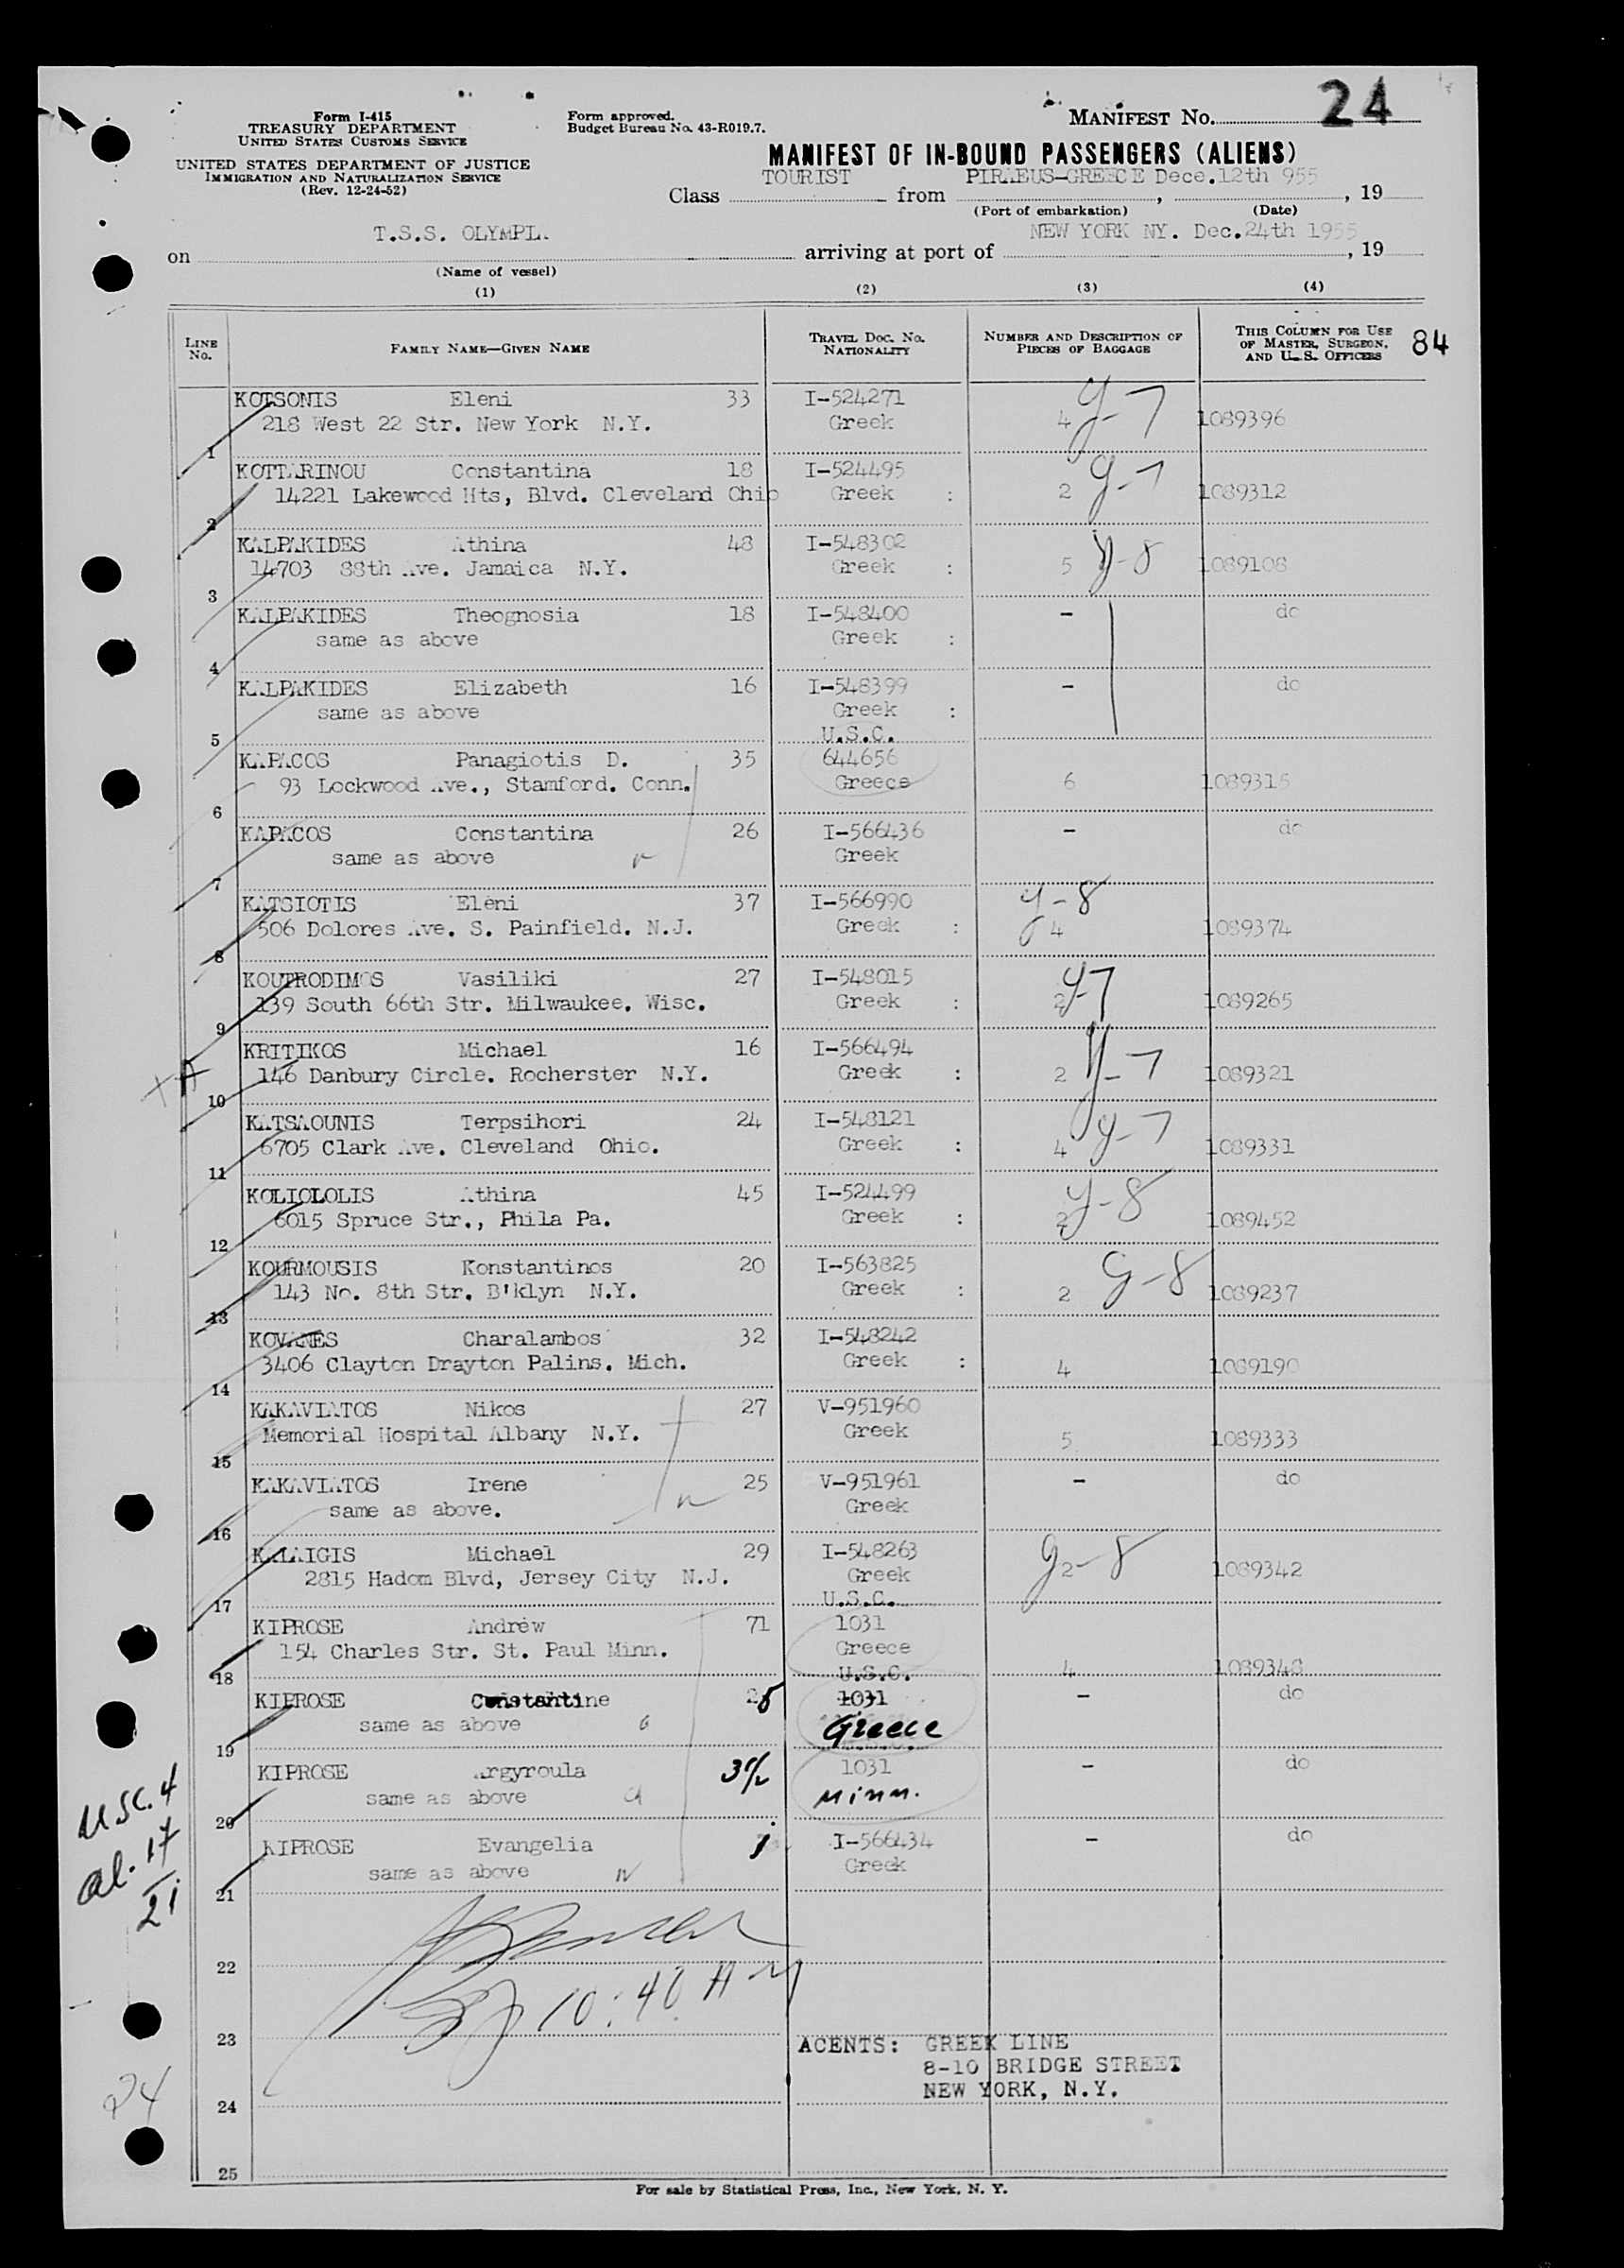 Form I-415
TREASURY DEPARTMENT
UNITED STATES CUSTOMS SERVICE
UNITED STATES DEPARTMENT OF JUSTICE
IMMIGRATION AND NATURALIZATION SERVICE
(Rev. 12-24-52)
Form approved.
Budget Bureau No. 43-R019.7.
MANIFEST No. 24
MANIFEST OF IN-BOUND PASSENGERS (ALIENS)
Class TOURIST from PIRAEUS-GREECE Dece.12th 955, 19
(Port of embarkation) (Date)
on T.S.S. OLYMPIA arriving at port of NEW YORK NY. Dec.24th 1955, 19
(Name of vessel)
(1) (2) (3) (4)
LINE No. FAMILY NAME—GIVEN NAME TRAVEL DOC. No. NATIONALITY NUMBER AND DESCRIPTION OF PIECES OF BAGGAGE THIS COLUMN FOR USE OF MASTER, SURGEON, AND U. S. OFFICERS 84
KOTSONIS Eleni 33 I-524271 y-7
1 218 West 22 Str. New York N.Y. Greek 4 1089396
KOTTARINOU Constantina 18 I-524495 y-7
2 14221 Lakewood Hts, Blvd. Cleveland Ohio Greek : 2 1089312
KALPAKIDES Athina 48 I-548302 y-8
3 14703 88th Ave. Jamaica N.Y. Greek : 5 1089108
KALPAKIDES Theognosia 18 I-548400 - do
4 same as above Greek :
KALPAKIDES Elizabeth 16 I-548399 - do
5 same as above Greek :
U.S.C.
KAPACOS Panagiotis D. 35 644656
6 93 Lockwood Ave., Stamford. Conn. Greece 6 1089315
KAPACOS Constantina 26 I-566436 - do
7 same as above Greek
KATSIOTIS Eleni 37 I-566990 y-8
8 506 Dolores Ave. S. Painfield. N.J. Greek : 4 1089374
KOUTRODIMOS Vasiliki 27 I-548015 y-7
9 139 South 66th Str. Milwaukee. Wisc. Greek : 2 1089265
KRITIKOS Michael 16 I-566494 y-7
10 146 Danbury Circle. Rocherster N.Y. Greek : 2 1089321
KATSAOUNIS Terpsihori 24 I-548121 y-7
11 6705 Clark Ave. Cleveland Ohio. Greek : 4 1089331
KOLIOLOLIS Athina 45 I-524499 y-8
12 6015 Spruce Str., Phila Pa. Greek : 2 1089452
KOURMOUSIS Konstantinos 20 I-563825 y-8
13 143 No. 8th Str. B'klyn N.Y. Greek : 2 1089237
KOVANES Charalambos 32 I-548242
14 3406 Clayton Drayton Palins. Mich. Greek : 4 1089190
KAKAVIATOS Nikos 27 V-951960
15 Memorial Hospital Albany N.Y. Greek 5 1089333
KAKAVIATOS Irene 25 V-951961 - do
16 same as above. Greek
KALAIGIS Michael 29 I-548263 y-8
17 2815 Hadom Blvd, Jersey City N.J. Greek 2 1089342
U.S.C.
KIPROSE Andrew 71 1031
18 154 Charles Str. St. Paul Minn. Greece 4 1089348
U.S.C.
KIPROSE Constantine 28 1031 - do
19 same as above Greece
KIPROSE Argyroula 31/2 1031 - do
20 same as above Minn.
KIPROSE Evangelia I-566434 - do
21 same as above Greek
USC. 4
al. 17
21
22
10:40 AM
23
AGENTS: GREEK LINE
8-10 BRIDGE STREET
NEW YORK, N.Y.
24
24
25
For sale by Statistical Press, Inc., New York, N. Y.